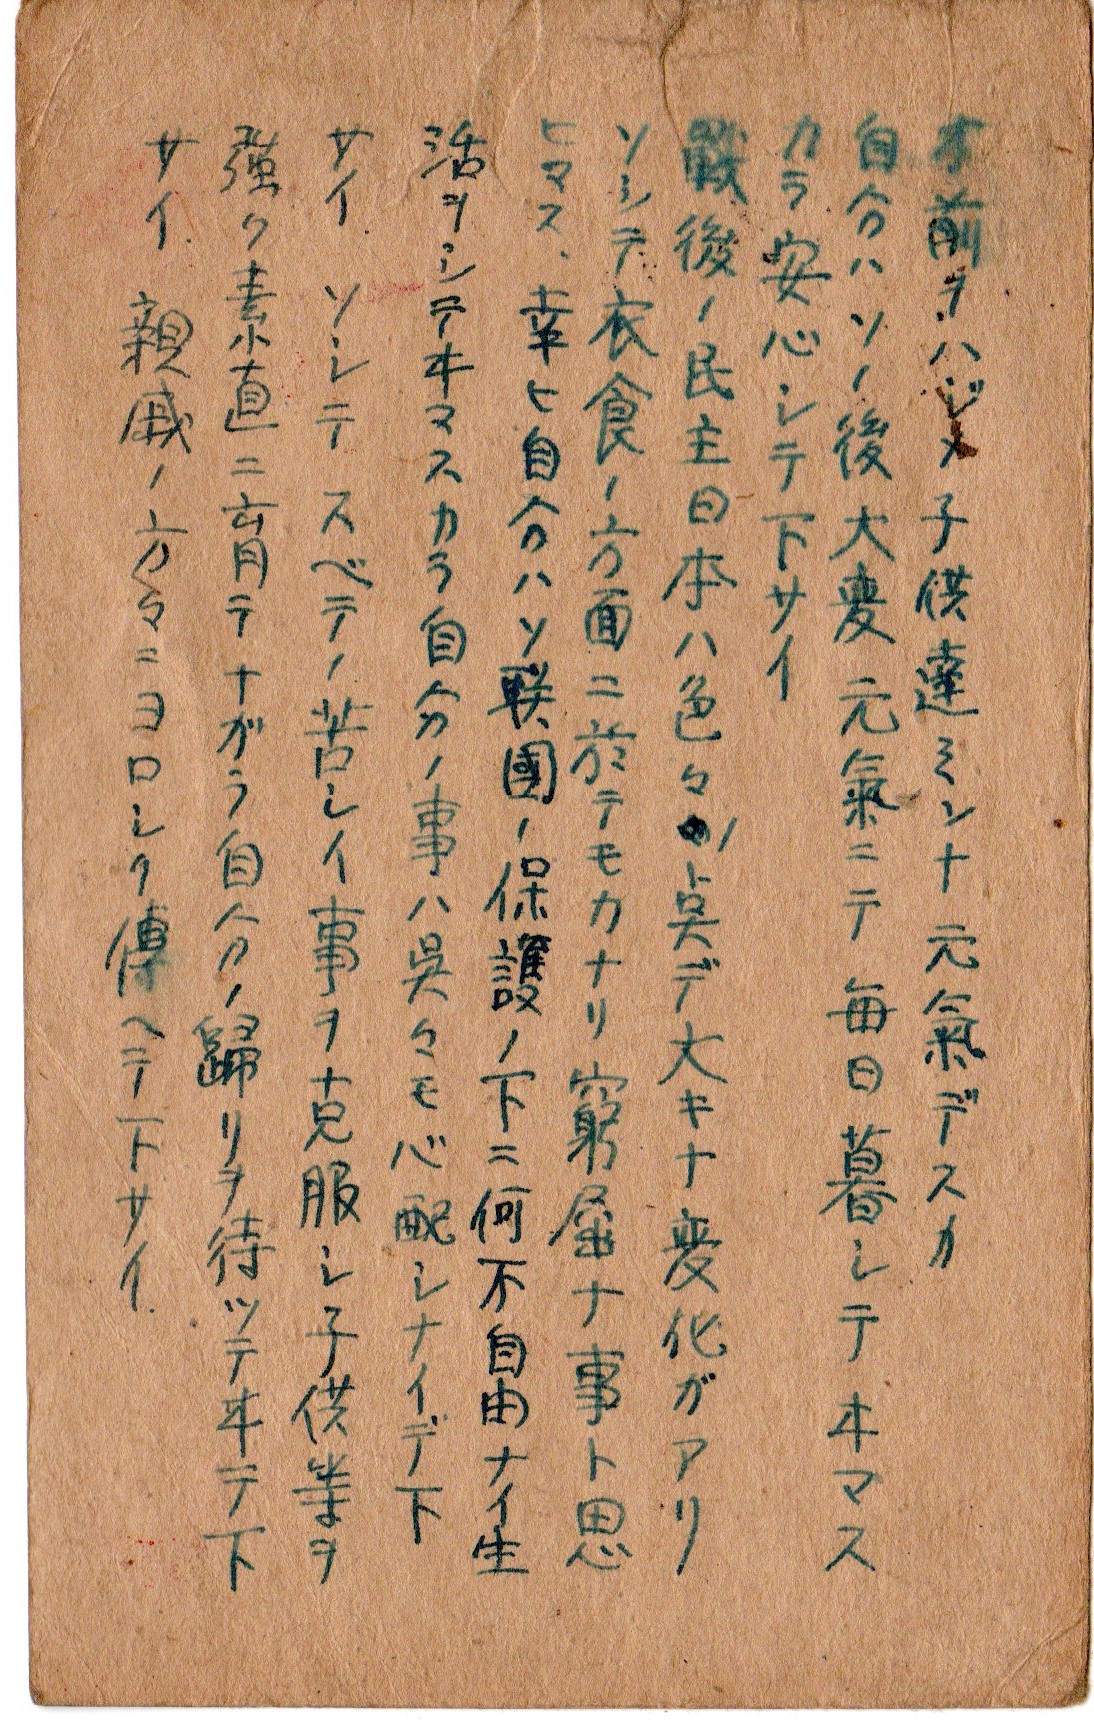 オ前ヲハジメ子供達ミンナ元氣デスカ
自分ハソノ後大変元氣ニテ毎日暮シテヰマス
カラ安心シテ下サイ
戰後ノ民主日本ハ色々ノ点デ大キナ変化ガアリ
ソシテ衣食ノ方面ニ於テモカナリ窮屈ナ事ト思
ヒマス、幸ヒ自分ハソ聯國ノ保護ノ下ニ何不自由ナイ生
活ヲシテヰマスカラ自分ノ事ハ呉々モ心配シナイデ下
サイ.ソシテスベテノ苦シイ事ヲ克服シ子供等ヲ
強ク素直ニ育テナガラ自分ノ歸リヲ待ツテヰテ下
サイ.親戚ノ方々ニヨロシク傳ヘテ下サイ.